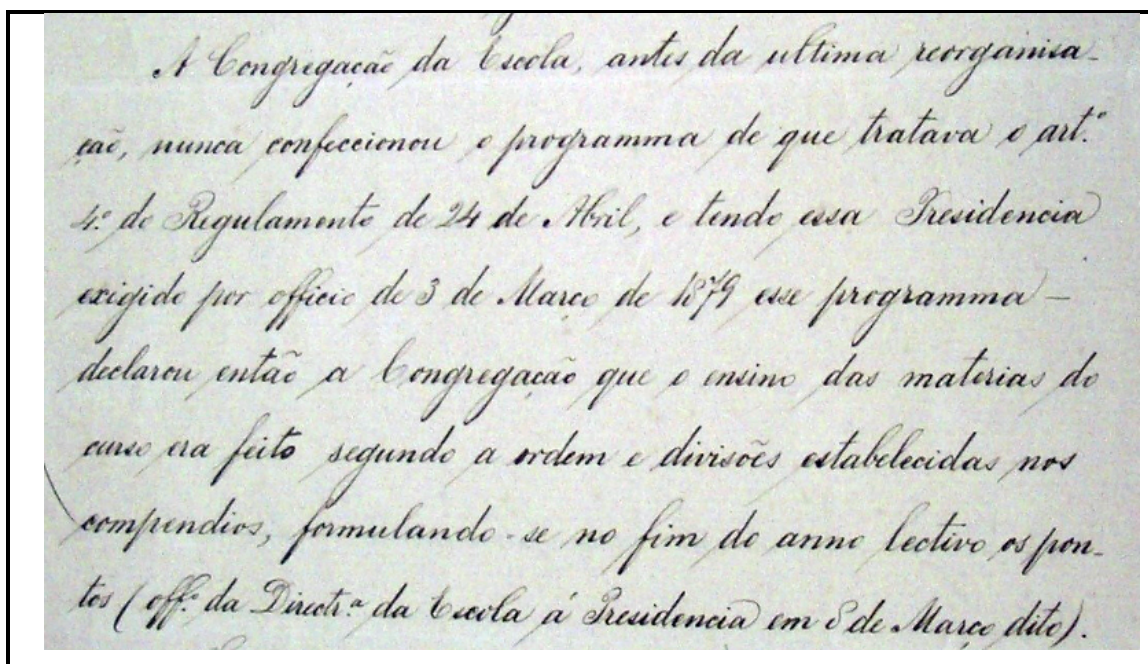 A Congregação da Escola, antes da ultima reorganisa-
ção, nunca confeccionou o programma de que tratava o art.º
4.º do Regulamento de 24 de Abril, e tendo essa Presidencia
exigido por officio de 3 de Março de 1879 esse programma —
declarou então a Congregação que o ensino das materias do
curso era feito segundo a ordem e divisões estabelecidas nos
compendios, formulando-se no fim do anno lectivo os pon-
tos (off.º da Directr.ª da Escola á Presidencia em 8 de Março dito).